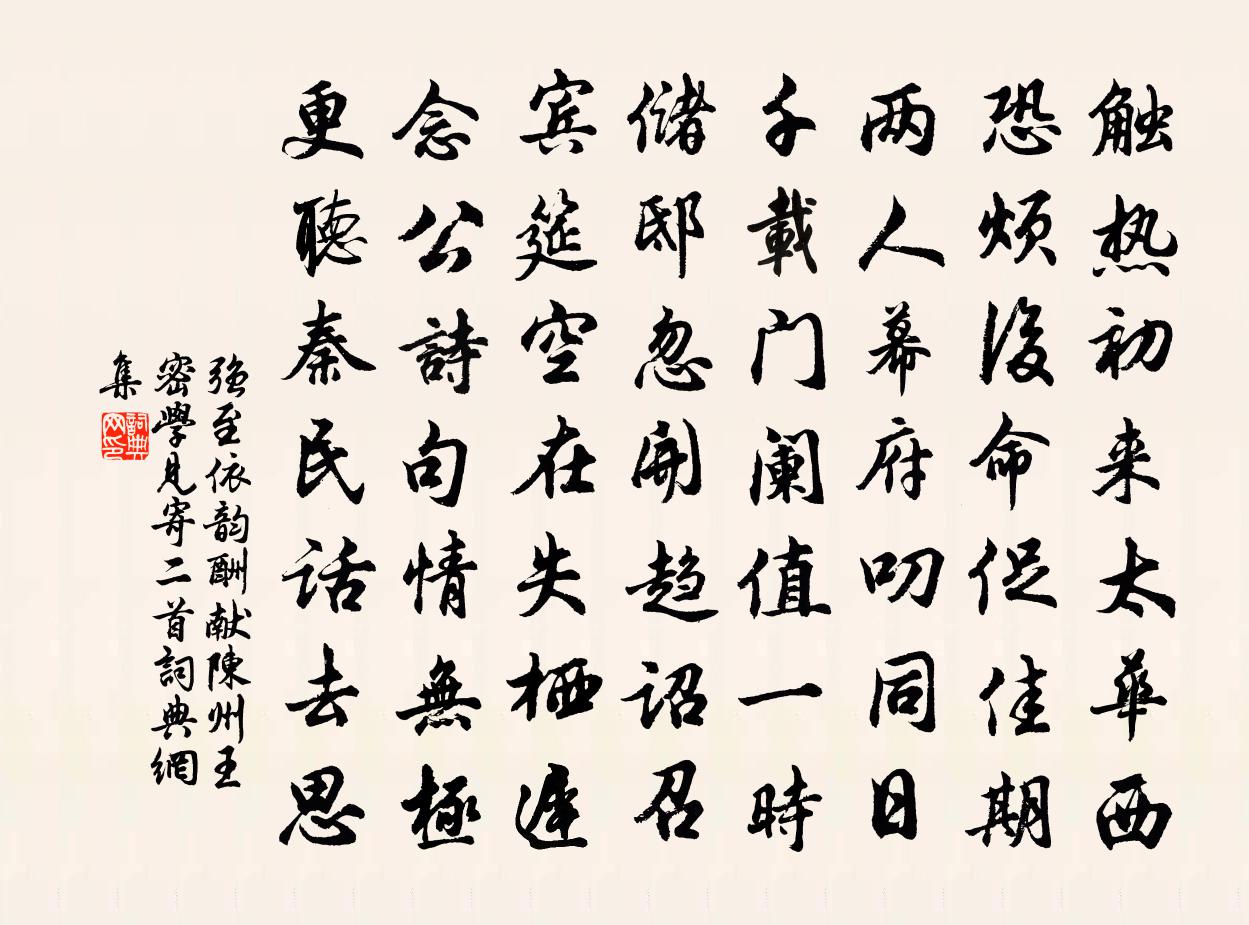 触热初来太华西
恐烦后命促佳期
两人幕府叨同日
千載门阑值一時
儲邸忽開趋诏召
宾筵空在失栖遲
念公詩句情無極
更聽秦民话去思
强至依韵酬献陳州王
密學见寄二首詞典網
集
詞典
网印